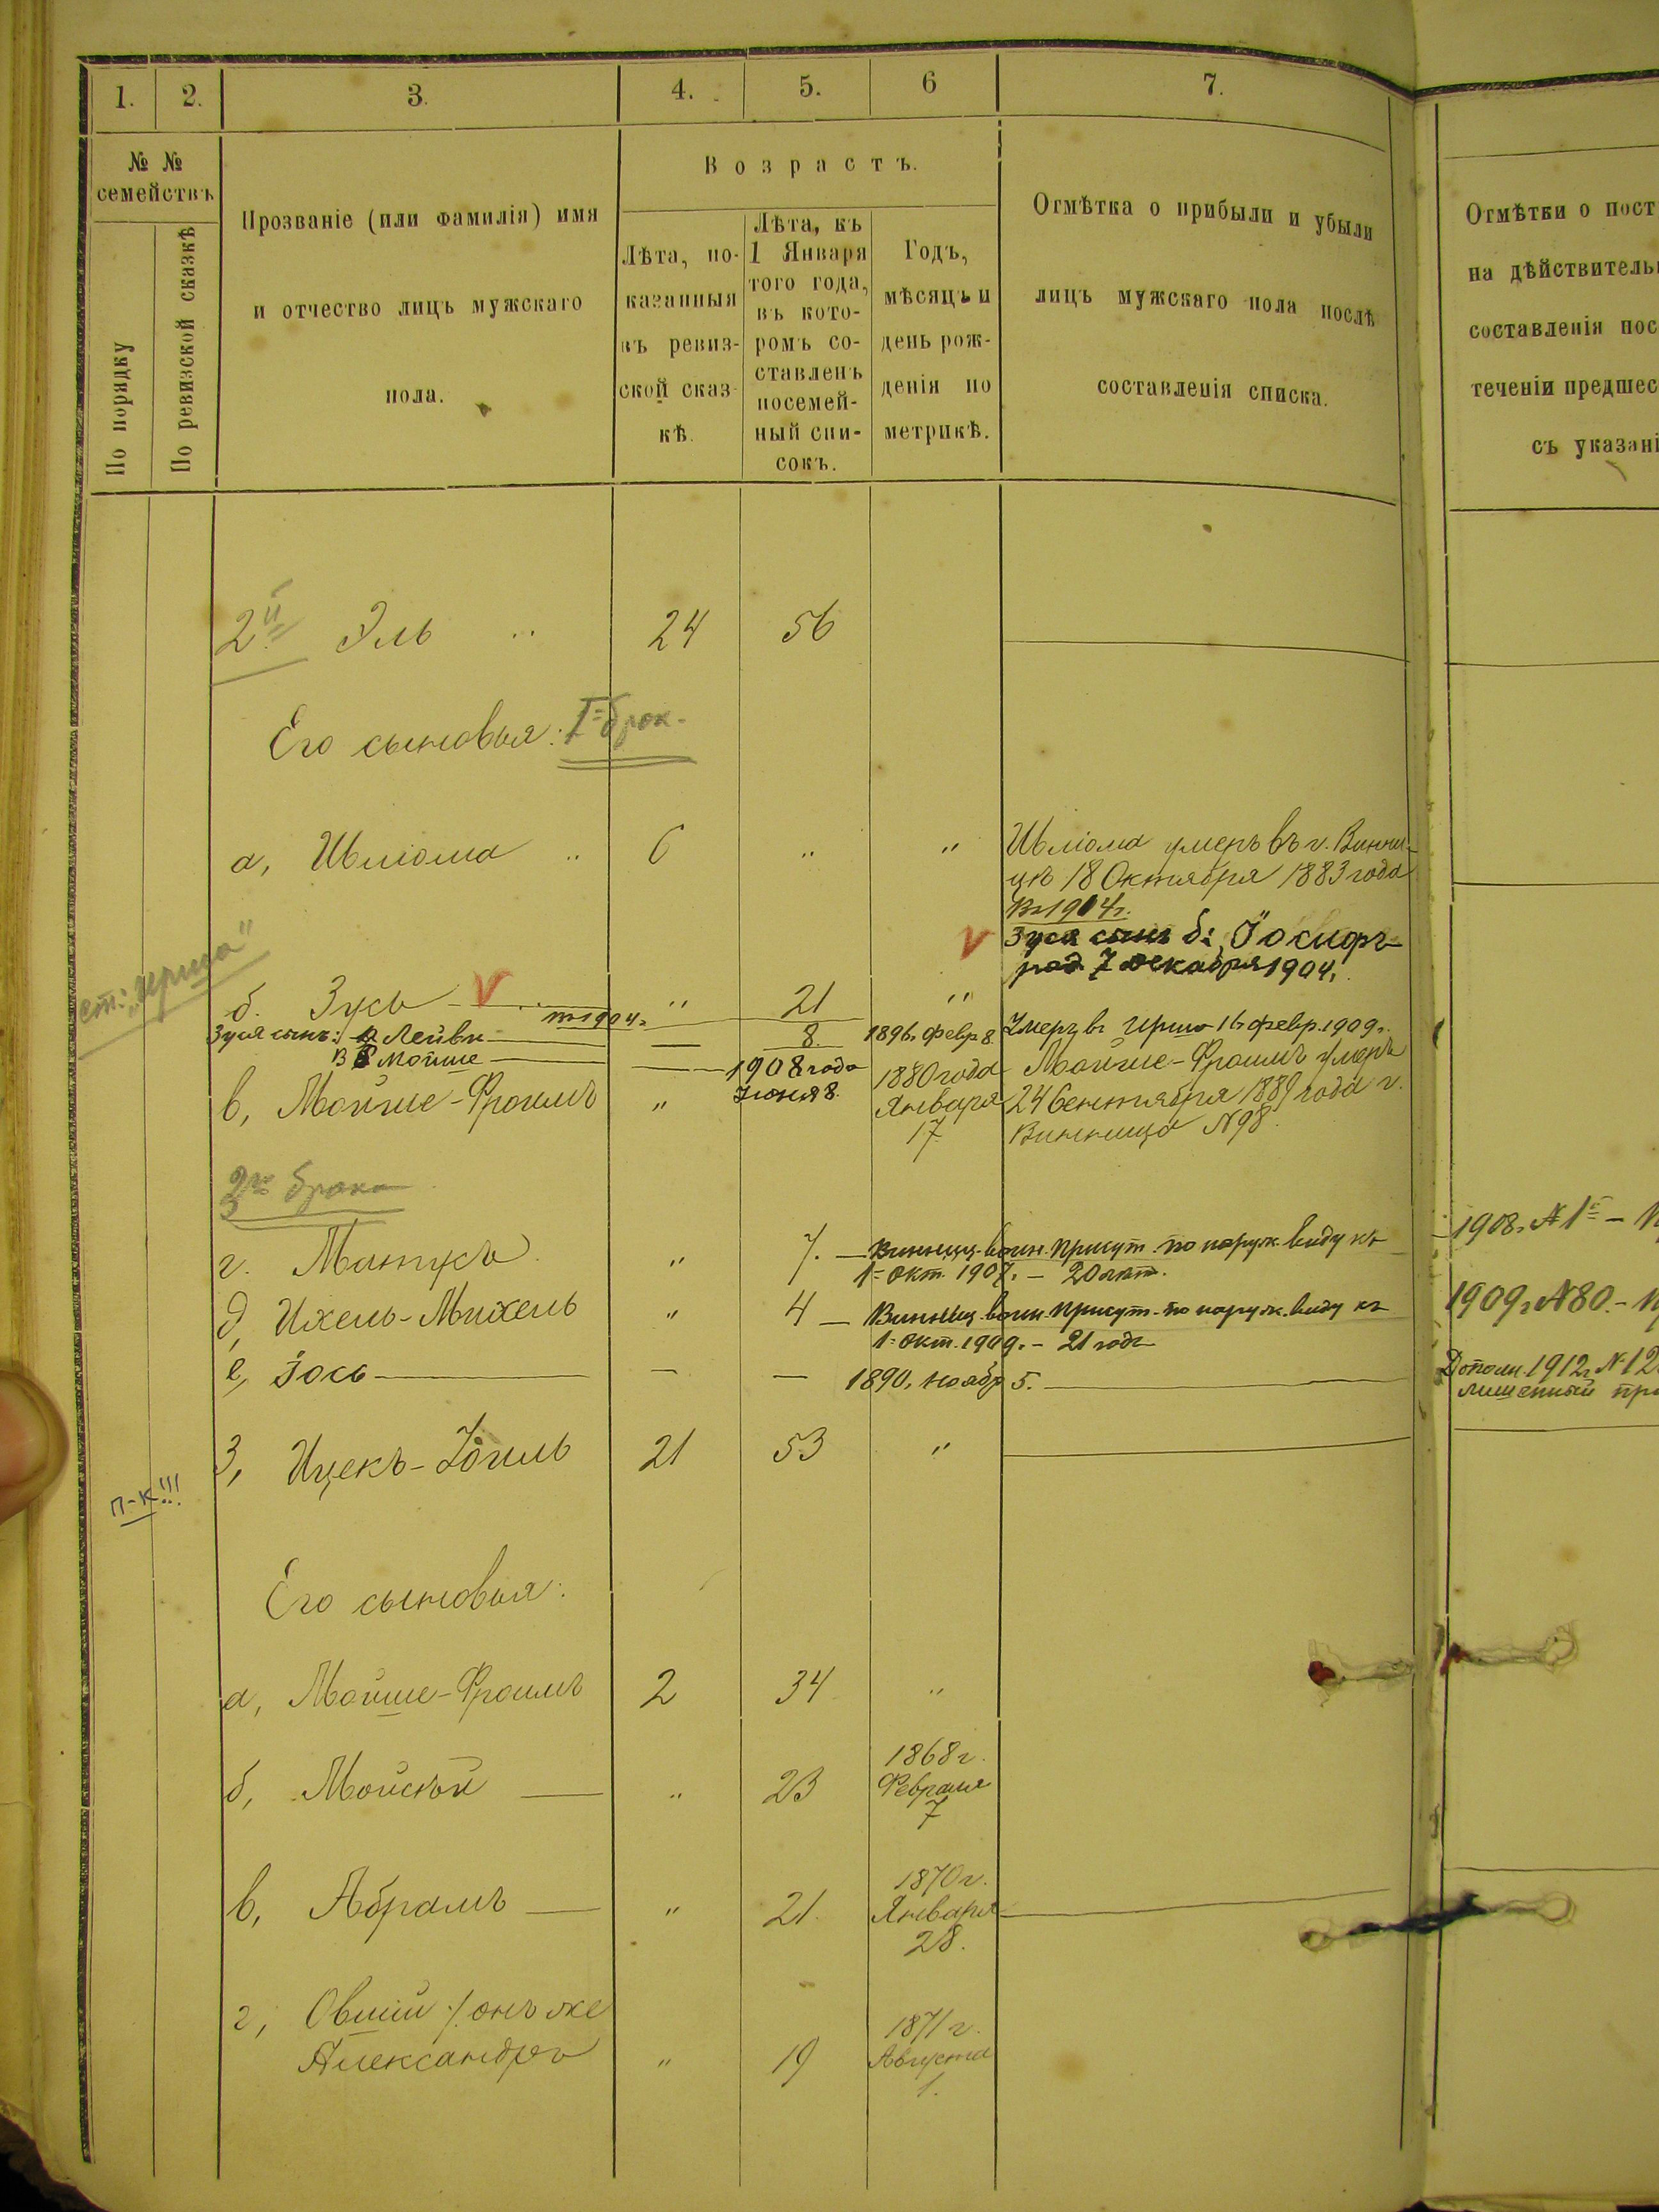 1. 2. 3. 4. 5. 6 7.
№ №
семействъ
По порядку
По ревизской сказкѣ
Прозваніе (или фамилія) имя
и отчество лицъ мужскаго
пола.
Возрастъ.
Лѣта, по-
казанныя
въ ревиз-
ской сказ-
кѣ.
Лѣта, къ
1 Января
того года,
въ кото-
ромъ со-
ставленъ
посемей-
ный спи-
сокъ.
Годъ,
мѣсяцъ и
день рож-
денія по
метрикѣ.
Отмѣтка о прибыли и убыли
лицъ мужскаго пола послѣ
составленія списка.
Отмѣтки о пост
на дѣйствитель
составленія пос
теченіи предшес
съ указані
2й Эль " 24 56
Его сыновья: I брак.
а, Шліома " 6 " "
Шліома умеръ въ г. Винни-
цѣ 18 Октября 1883 года
Въ 1904 г.
V Зуся сынъ б: Іосифъ
род 7 декабря 1904.
ст: "Ирша"
б. Зусь V " 21 "
Зуся сынъ: а Лейви 1904 г. — 8. 1896. Февр 8. Умеръ въ Ирша 16 февр. 1909 г.
В Мойше — 1908 года
Іюня 8.
в, Мойше-Фроимъ " 1880 года
Января
17
Мойше-Фроимъ умеръ
24 Сентября 1889 года г.
Винница №98.
2го брака
г. Матусъ " 7. — Винниц. воин. Присут. по наруж. виду къ
1 = Окт. 1907. — 20 лѣт.
1908. №1 —
д, Ихель-Михель " 4 — Винниц. воин. Присут. по наруж. виду къ
1 = Окт. 1909. — 21 годъ
1909 г №80. —
е, Іось — — — 1890, ноябр 5.
Дополн. 1912 г. №12
лишенный пр
3, Ицекъ-Іойль 21 53 "
п-к!!!
Его сыновья:
а, Мойше-Фроимъ 2 34 "
б, Мойсѣй — " 23 1868 г.
Февраля
7
в, Абрамъ — " 21. 1870 г.
Января
28.
г, Овшій /онъ же
Александръ " 19 1871 г.
Августа
1.